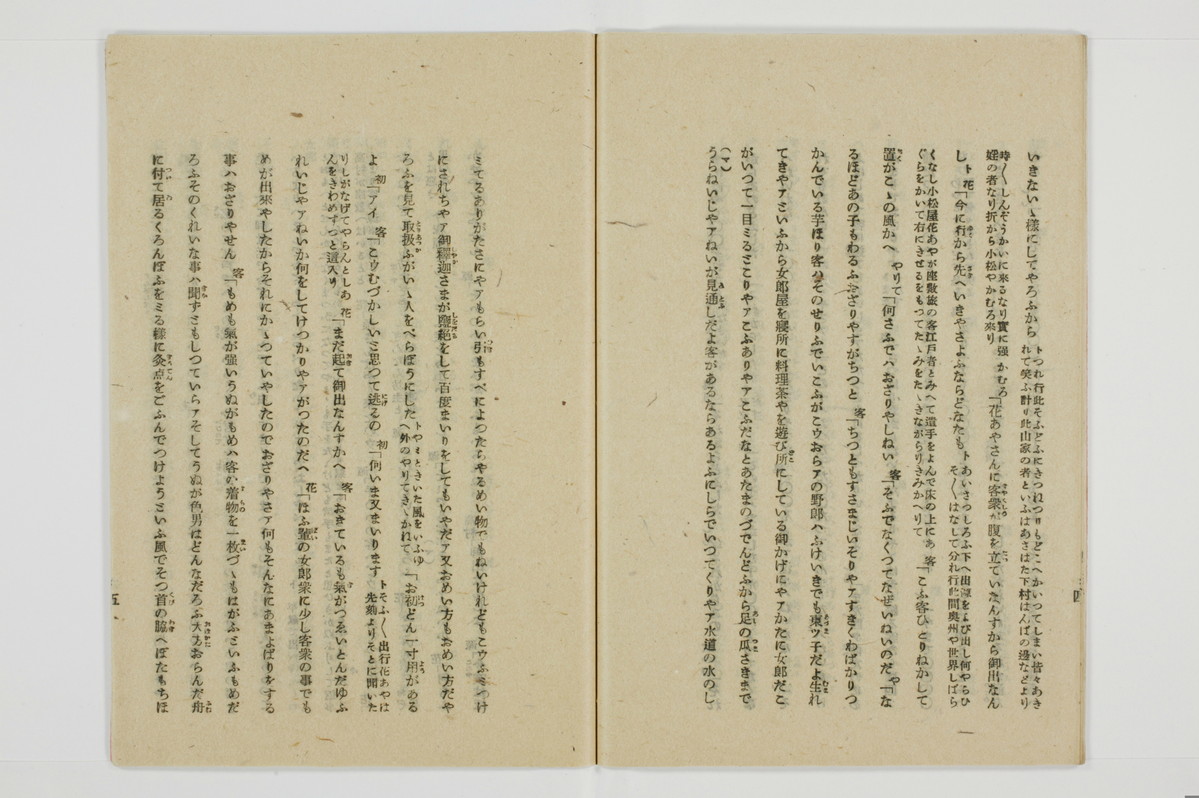 いきないゝ様にしてやろふから トつれ行此そふどふにきつねつりもどこへかいつてしまい皆々あき れて笑ふ計り此山家の者といふはあさはた下村はんばの邊などより
時〳〵しんぞうかいに来るなり實に强 婬の者なり折から小松やかむろ來り かむろ「花あやさんに客衆が腹を立ていたんすから御出なん
し ト 花「今に行から先へいきやさよふならどなたも トあいさつしろふ下へ出源をよび出し何やらひ そ〳〵はなして分れ行此間奥州や世界しばら
くなし小松屋花あやが座敷旅の客江戸者とみへて遣手をよんで床の上にあ ぐらをかいて右にきせるをもつてたゝみをたゝきながらりきみかへりて 客「こふ客ひとりねかして
置がこゝの風かへ やりて「何さふでハおざりやしねい 客「そふでなくつてなぜいねいのだ や「な
るほどあの子もわるふおざりやすがちつと 客「ちつともすさまじいそりやアすきくわばかりつ
かんでいる芋ほり客ハそのせりふでいこふがこウおらアの野郎ハふけいきでも東ツ子だよ生れ
てきやアミいふから女郎屋を寢所に料理茶やを遊び所にしている御かげにやアかたに女郎だこ
がいつて一目ミるミこりやアこふありやアこふだなとあたまのづでんどふから足の瓜さきまで
うらねいじやアねいが見通しだよ客があるならあるよふにしらでいつてくりやア水道の水のし
四
ミてるありがたさにやアもらい引もすべによつたらやるめい物でもねいけれどもこウふミつけ
にされちやア御釋迦さまが鹽絶をして百度まいりをしてもいやだア又おめい方もおめい方だや
ろふを見て取扱ふがいゝ人をべらぼうにした トやミときいた風をいふゆ へ外のやりてきゝかねて 「お初どん一寸用がある
よ 初「アイ 客「こウむづかしいミ思つて逃るの 初「何いま又まいります トそふ〳〵出行花あやは 先刻よりそとに聞いた
りしがなげてやらんとしあ んをきわめすつと這入り 花「まだ起て御出なんすかへ 客「おきているも氣がつゑいとんだゆふ
れいじやアねいか何をしてけつかりやアがつたのだへ 花「ほふ輩の女郎衆に少し客衆の事でも
めが出來やしたからそれにかゝつていやしたのでおざりやさア何もそんなにあまよばりをする
事ハおざりやせん 客「もめも氣が强いうぬがもめハ客の着物を一枚づゝもはがふといふもめだ
ろふそのくれいな事ハ聞ずミもしつていらアそしてうぬが色男はどんなだろふ大方おらんだ舟
に付て居るくろんぼふをミる樣に灸点をごふんでつけようミいふ風でそつ首の脇へぼたもちほ
五